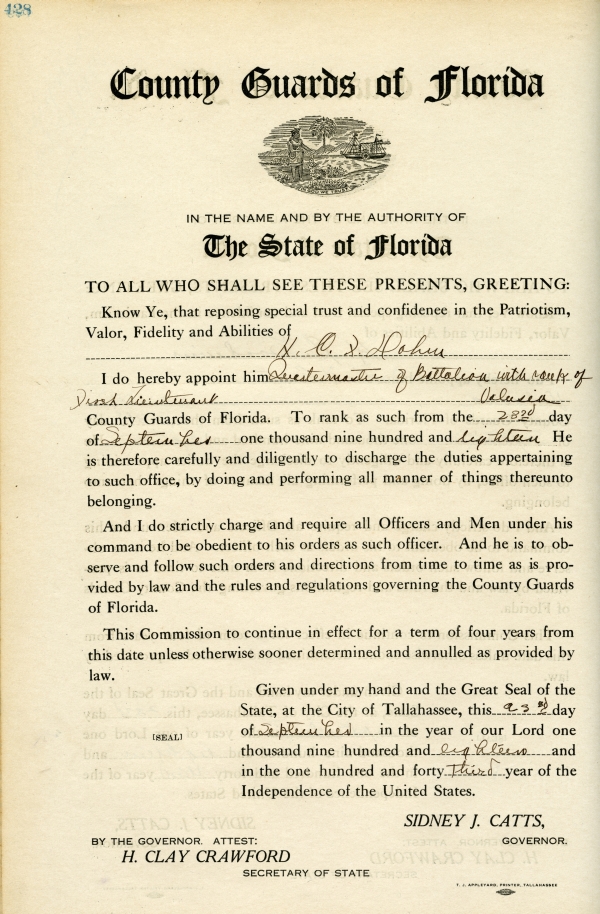 428
County Guards of Florida
IN THE NAME AND BY THE AUTHORITY OF
The State of Florida
TO ALL WHO SHALL SEE THESE PRESENTS, GREETING:
Know Ye, that reposing special trust and confidence in the Patriotism,
Valor, Fidelity and Abilities of
I do hereby appoint him Quartermaster of Battalion with rank of
First Lieutenant Volusia
County Guards of Florida. To rank as such from the 23rd day
of September one thousand nine hundred and eighteen He
is therefore carefully and diligently to discharge the duties appertaining
to such office, by doing and performing all manner of things thereunto
belonging.
And I do strictly charge and require all Officers and Men under his
command to be obedient to his orders as such officer. And he is to ob-
serve and follow such orders and directions from time to time as is pro-
vided by law and the rules and regulations governing the County Guards
of Florida.
This Commission to continue in effect for a term of four years from
this date unless otherwise sooner determined and annulled as provided by
law.
Given under my hand and the Great Seal of the
State, at the City of Tallahassee, this 23rd day
[SEAL] of September in the year of our Lord one
thousand nine hundred and eighteen and
in the one hundred and forty third year of the
Independence of the United States.
SIDNEY J. CATTS,
BY THE GOVERNOR. ATTEST: GOVERNOR.
H. CLAY CRAWFORD
SECRETARY OF STATE
T. J. APPLEYARD, PRINTER, TALLAHASSEE